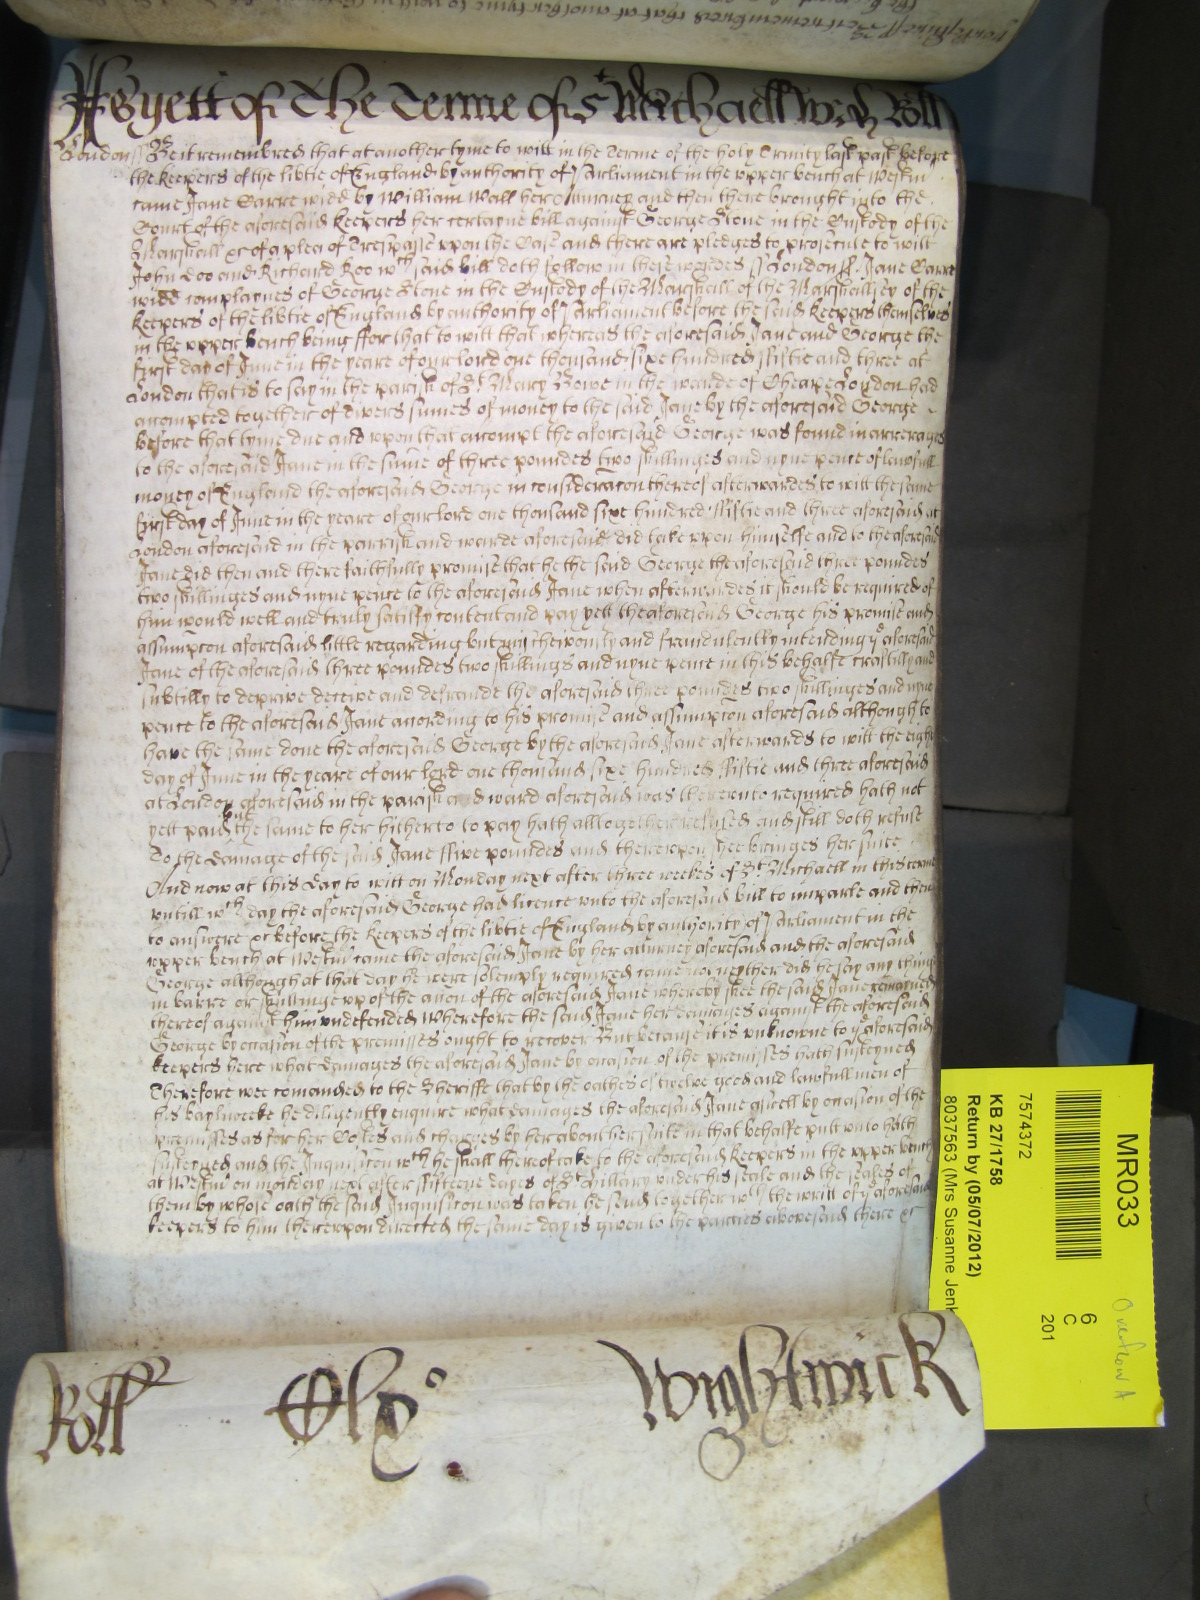 As yett of The Terme of St Michaell Roll
London ss Be it remembred that at another tyme to witt in the Terme of the holy Trinity last past before
the keepers of the libtie of England by authority of Parliament in the upper bench at Westm
came Jane Carre widd by William Wall her Atturney and then there brought into the
Court of the aforesaid keepers her certayne bill against George Stone in the Custody of the
Marshall &c of a plea of Trespasse upon the Case and there are pledges to prosecute to witt
John Doo and Richard Roo wch said bill doth follow in these wordes ss London ss Jane Carre
widd complaynes of George Stone in the Custody of the Marshall of the Marshallsey of the
keepers of the libtie of England by authority of Parliament before the said keepers themselves
in the upper bench being ffor that to witt that whereas the aforesaid Jane and George the
first day of June in the yeare of our lord one thousand sixe hundred ffiftie and three at
London that is to say in the parish of St Mary Bowe in the warde of Cheape London had
accompted together of divers summes of money to the said Jane by the aforesaid George
before that tyme due and upon that accompt the aforesaid George was found in arrerages
to the aforesaid Jane in the summe of three poundes two shillinges and nyne pence of lawfull
money of England the aforesaid George in consideracon thereof afterwardes to witt the same
first day of June in the yeare of our lord one thousand sixe hundred ffiftie and three aforesaid at
London aforesaid in the parrish and warde aforesaid did take upon himselfe and to the aforesaid
Jane did then and there faithfully promise that he the said George the aforesaid three poundes
two shillinges and nyne pence to the aforesaid Jane when afterwardes it should be required of
him would well and truly satisfy content and pay yett the aforesaid George his promise and
assumpcon aforesaid little regarding but and fraudulently intending ye aforesaid
Jane of the aforesaid three poundes two shillings and nyne pence in this behalfe craftilly and
subtilly to deprive deceive and defraude the aforesaid three poundes two shillinges and nyne
pence to the aforesaid Jane according to his promise and assumpcon aforesaid although to
have the same done the aforesaid George by the aforesaid Jane afterwards to witt the eight
day of June in the yeare of our lord one thousand sixe hundred ffiftie and three aforesaid
at London aforesaid in the parish and ward aforesaid was thereunto required hath not
yett paid but the same to her hitherto to pay hath alltogether refused and still doth refuse
To the damage of the said Jane ffive poundes and thereupon shee bringes her suite
And now at this day to witt on Monday next after three weekes of St Michaell in this terme
untill wch day the aforesaid George had licence unto the aforesaid bill to imparle and then
to answere &c before the keepers of the libtie of England by authority of Parliament in the
upper bench at Westm came the aforesaid Jane by her atturney aforesaid and the aforesaid
George although at that day he were solemply required came not neyther did he say any thing
in barre or of the accon of the aforesaid Jane whereby shee the said Jane remained
thereof against him undefended Wherefore the said Jane her damages against the aforesaid
George by occasion of the premisses ought to recover But because it is unknowne to ye aforesaid
keepers here what damages the aforesaid Jane by occasion of the premisses hath susteyned
Therefore wee comanded to the Sheriffe that by the oathes of twelve good and lawfull men of
his baylweeke he diligently enquire what damages the aforesaid Jane aswell by occasion of the
premisses as for her Costes and charges by her about her suite in that behalfe putt unto hath
susteyned and the Inquisicon wch he shall thereof take to the aforesaid keepers in the upper bench
at Westm on monday next after ffifteene dayes of St Hillary under his seale and the seales of
them by whose oath the said Inquisicon was taken he send together wth the writt of ye aforesaid
keepers to him thereupon directed the same day is given to the parties abovesaid there &c
Roll Wightwick
MR033
7574372
KB 27/1758
Return by (05/07/2012)
8037563 (Mrs Susanne Jenk
6
C
201
Overflow A